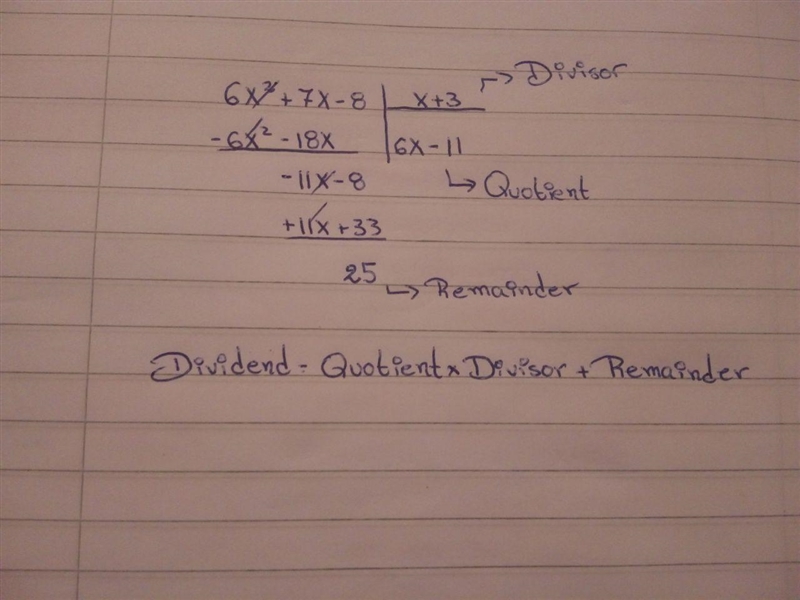 ↱ Divisor
6x² + 7x - 8 | x + 3
- 6x² - 18x | 6x - 11
- 11x - 8 ↳ Quotient
+ 11x + 33
25 ↳ Remainder
Dividend = Quotient × Divisor + Remainder